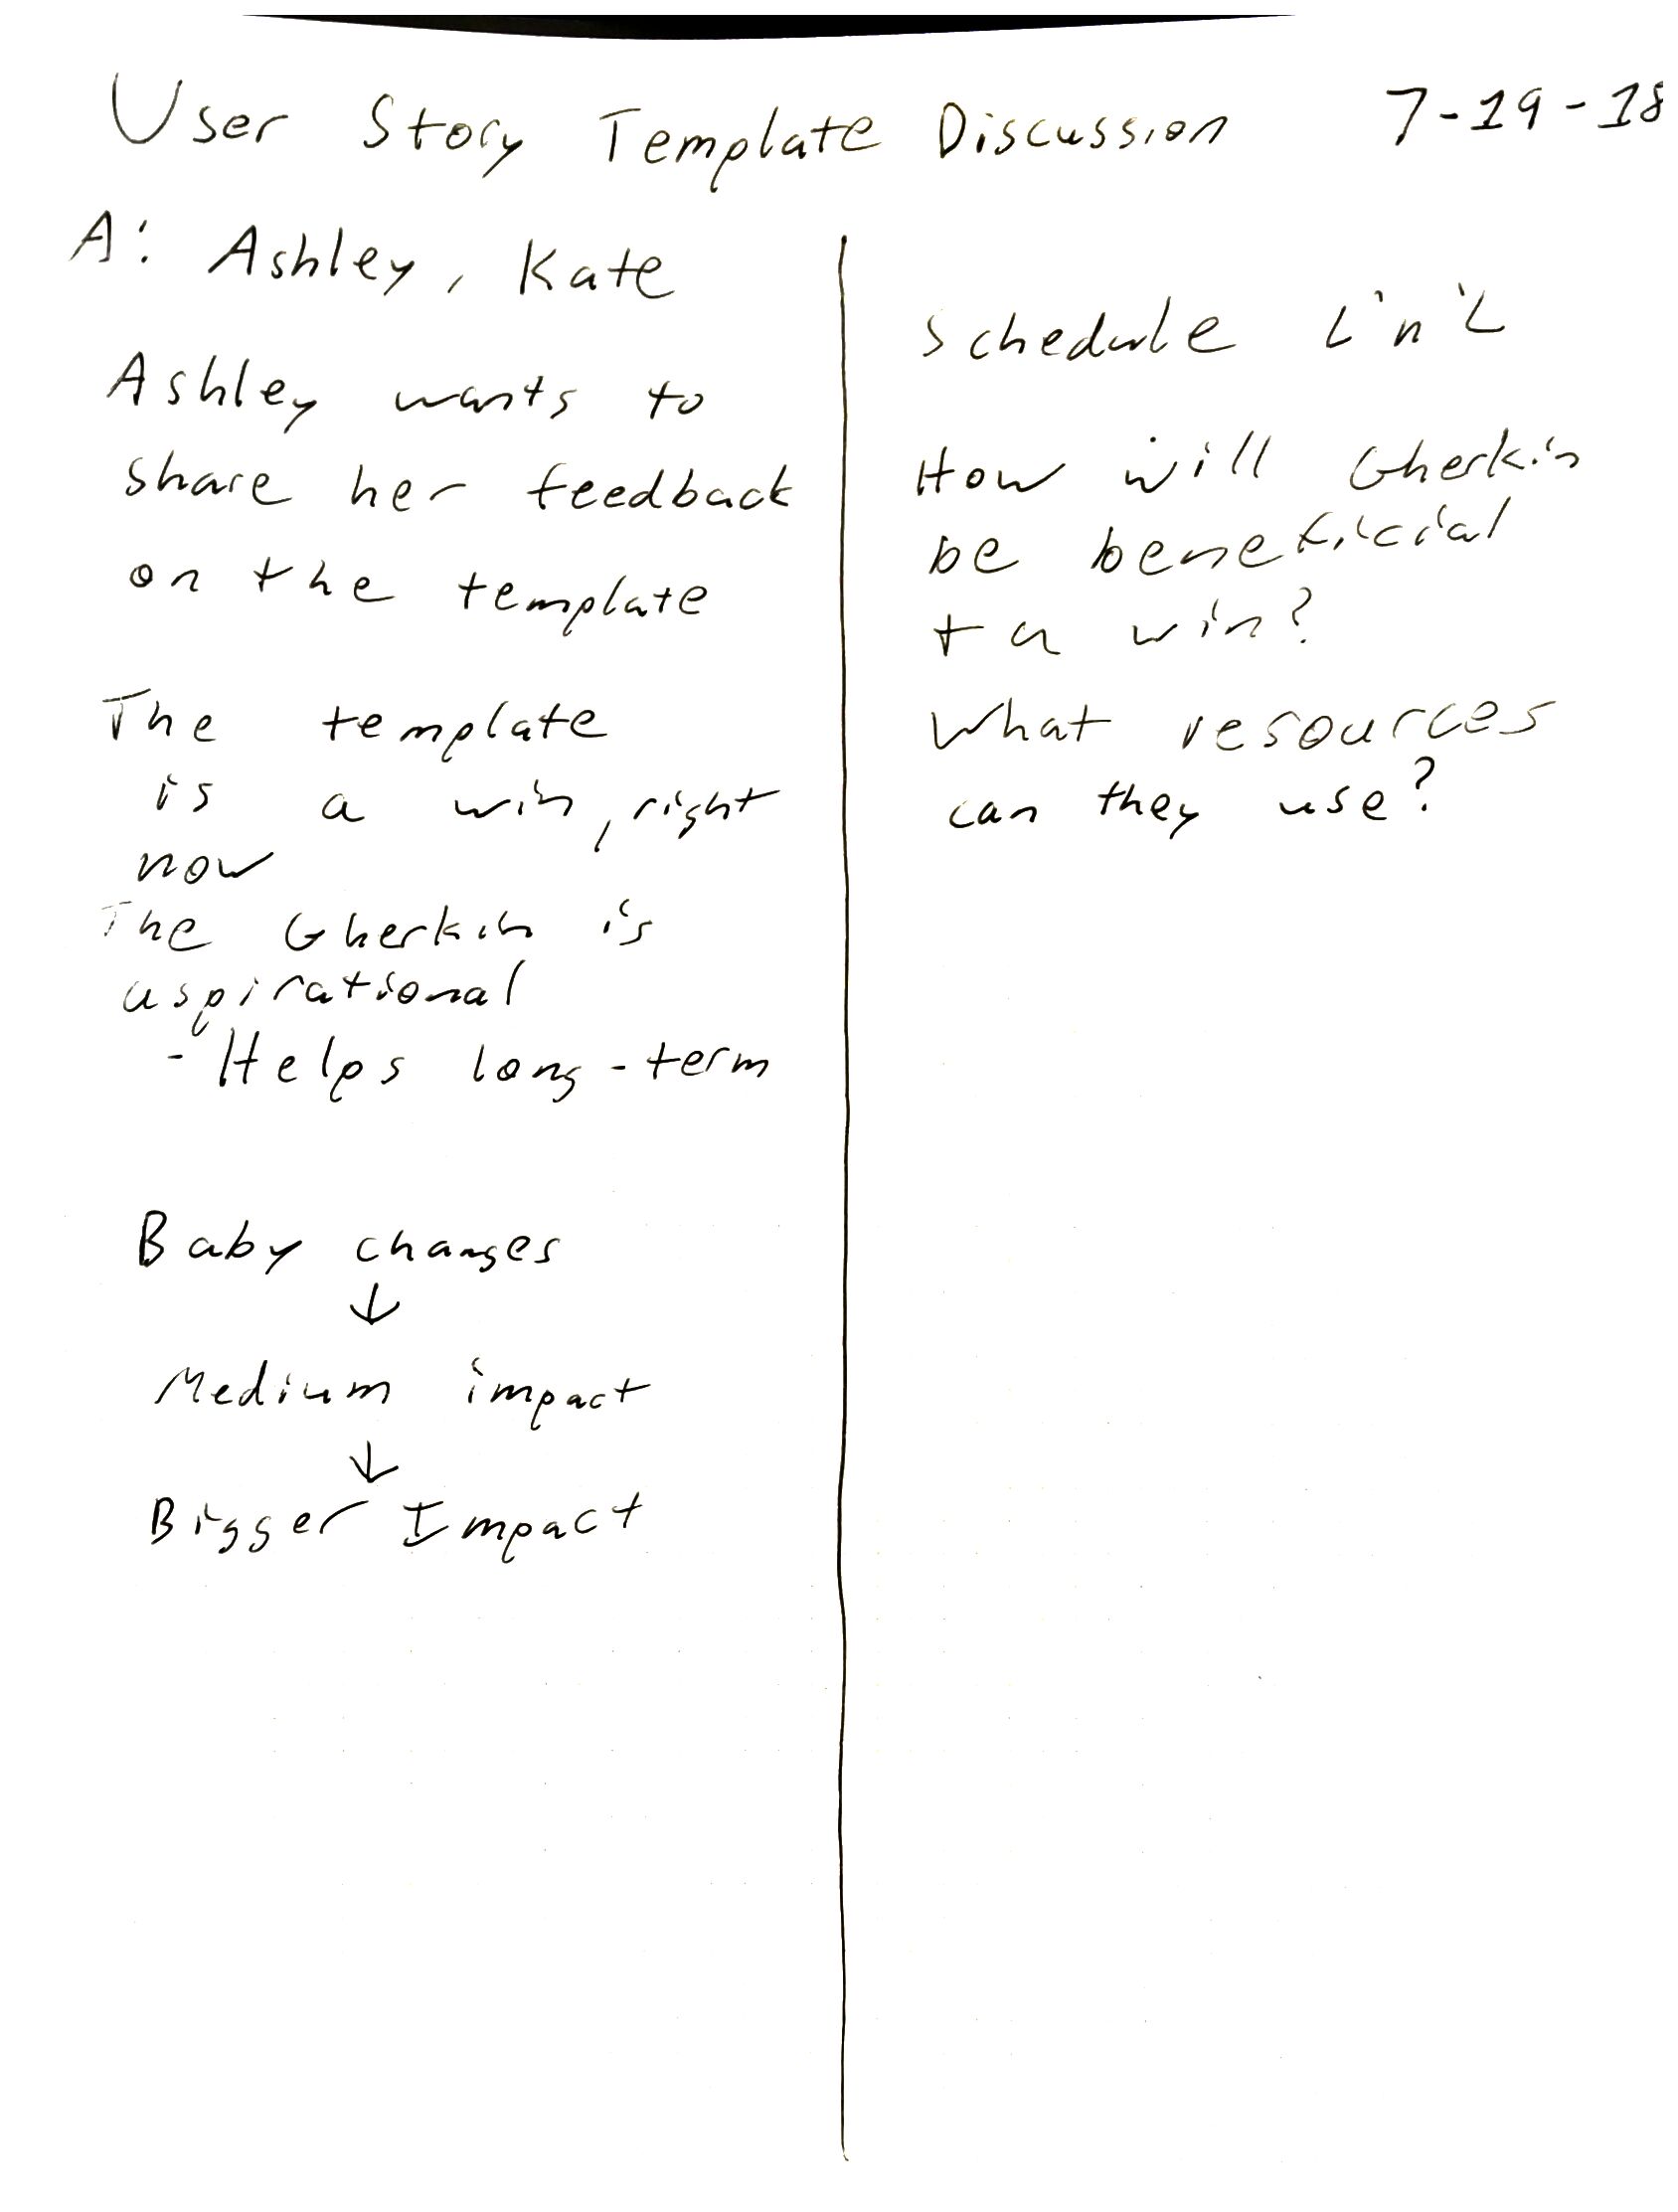 User Story Template Discussion 7-19-18
A: Ashley, Kate
Ashley wants to
share her feedback
on the template
The template
is a win, right
now
The Gherkin is
aspirational
- Helps long-term
Baby changes
↓
Medium impact
↓
Bigger Impact
Schedule L'n'L
How will Gherkin
be beneficial
to a win?
What resources
can they use?